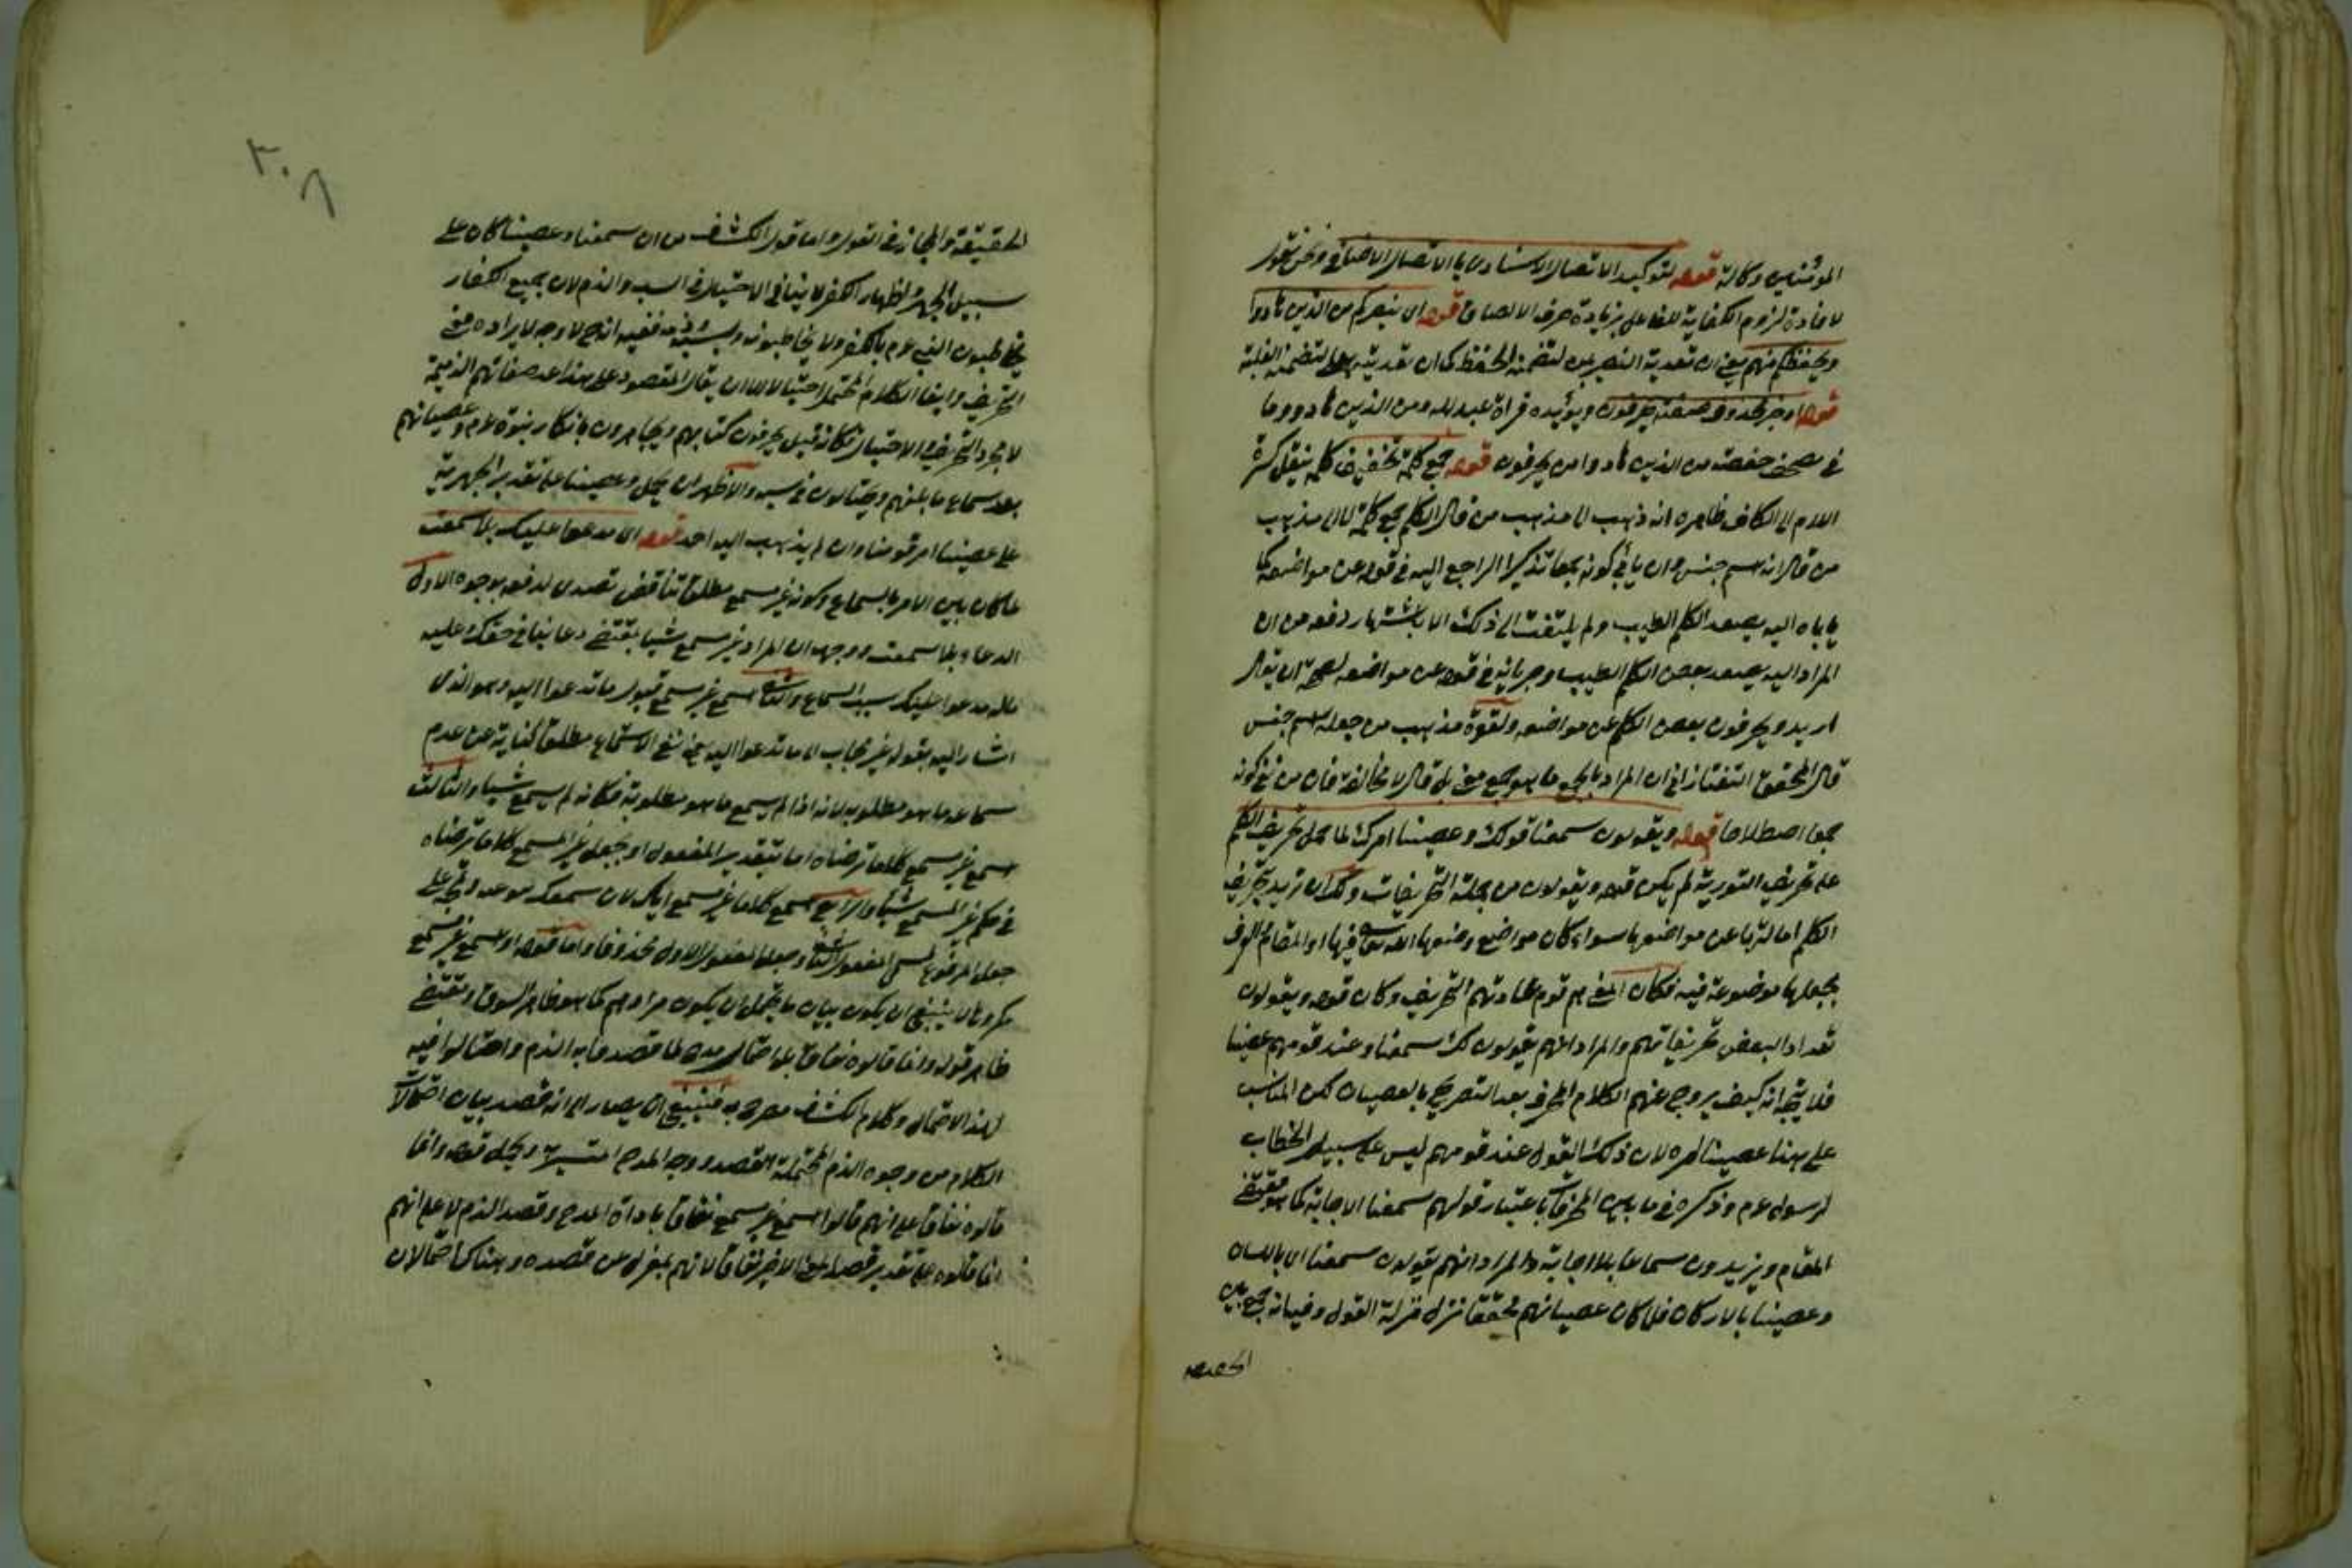 المؤمنين وكالة قوله لتوكيد الاتصال الاسنادى بالاتصال الاضافى ونحن نقول
لافادة لزوم الكفاية للفاعل بزيادة حرف الالصاق قوله اى ينصركم من الذين هادوا
ويحفظكم منهم يعنى ان تعدية النصر بمن لتضمنه الحفظ كما ان تعديته بعلى لتضمنه الغلبة
قوله او خبر محذوف صفته يحرفون ويؤيده قراة عبد الله ومن الذين هادوا وما
فى مصحف حفصة من الذين هادوا من يحرفون قوله جمع كلمة تخفيف كلمة بنقل كسرة
اللام الى الكاف ظاهره انه ذهب الى مذهب من قال الكلم جمع كلمة لا الى مذهب
من قال انه اسم جنس وان يأبى كونه جمعا تذكير الراجع اليه فى قوله عن مواضعه كما
ياباه اليه يصعد الكلم الطيب ولم يلتفت الى ذلك الاباء لاشتهار دفعه من ان
المراد اليه يصعد بعض الكلم الطيب وجريانه فى قوله عن مواضعه لصحة ان يقال
اريد ويحرفون بعض الكلم عن مواضعه ولقوة مذهب من جعله اسم جنس
قال المحقق التفتازانى ان المراد بالجمع ما هو جمع معنى بل قال لا مخالفة فان من نفى كونه
جمعا اصطلاحا قوله ويقولون سمعنا قولك وعصينا امرك لما حمل تحريف الكلم
على تحريف التورية لم يكن قوله ويقولون من جملة التحريفات ولك ان تريد بتحريف
الكلم امالتها عن مواضعها سواء كان مواضع وضعها الله تعالى فيها او المقام العرف
بجعلها موضوعة فيه فكان المعنى هم قوم عادتهم التحريف وكان قوله ويقولون
تعداد البعض تحريفاتهم والمراد انهم يقولون لك سمعنا وعند قومهم عصينا
فلا يتجه انه كيف يروج عنهم الكلام المحرف بعد التصريح بالعصيان لكن المناسب
على هذا عصينا امره لان ذلك القول عند قومهم ليس على سبيل الخطاب
لرسول عم وذكره فى ما بين المحرفات باعتبار قولهم سمعنا الاجابة كما هو مقتضى
المقام ويزيدون سماعا بلا اجابة والمراد انهم يقولون سمعنا اى باللسان
وعصينا بالاركان فلما كان عصيانهم محققا نزل منزلة القول وفيه انه جمع بين
الحقيقة
٣٠٨
الحقيقة والمجاز فى القول واما قول الكشاف من ان سمعنا وعصينا كان على
سبيل الجهر واظهار الكفر لا ينافى الاحتيال فى السب والذم لان جميع الكفار
يخاطبون النبى عم بالكفر ولا يخاطبونه بسب وذم ففيه انه ح لا وجه لايراده مع
التحريف وايضا الكلام المحتمل احتيالا الا ان يقال المقصود على هذا عد صفاتهم الذميمة
لا مجرد التحريف والاحتيال فكانه قيل يحرفون كتابهم ويجاهرون بانكار نبوة عم وعصيانهم
بعد سماع ما بلغهم ويحتالون فى سبه والاظهر ان يحمل وعصينا على تقدير الجهرية
على عصينا امر قومنا وان لم يذهب اليه احد قوله اى مدعوا عليك بلا سمعت
لما كان بين الامر بالسماع وكونه غير مسمع مطلقا تناقض تصدى لدفعه بوجوه الاول
الدعاء بلا سمعت ووجهه ان المراد غير مسمع شيئا بمقتضى دعائنا فى حقك وعليه
اشار اليه بقوله غير مجاب الى ما تدعوا اليه يعنى نفى الاستماع مطلقا كناية عن عدم
سماعه ما هو مطلوبه لانه اذا لم يسمع ما هو مطلوبه فكانه لم يسمع شيئا والثالث
اسمع غير مسمع كلاما ترضاه اما بتقدير المفعول او بجعل غير المسمع كلاما ترضاه
فى حكم غير المسمع شيئا والرابع اسمع كلاما غير مسمع اياك لان سمعك
جعل المرفوع المفعول الثانى وجعل المفعول الاول محذوفا واما قوله او اسمع غير مسمع
مكروها لا ينبغى ان يكون بيان ما يحتمل ان يكون مرادهم كما هو ظاهر السوق ويقتضى
ظاهر قوله وانما قالوه نفاقا بل احتمال مدح لما قصدوا به الذم واحتالوا فيه
لهذا الاحتمال وكلام الكشاف مصرح به فينبغى ان يصار الى انه قصد بيان احتمالات
الكلام من وجوه الذم المحتملة القصد ووجه المدح ويحمل قوله وانما
قالوه نفاقا على انهم قالوا اسمع غير مسمع نفاقا بارادة المدح وقصد الذم لا على انهم
انما قالوه على تقدير قصد المعنى الاخير نفاقا لانهم بمعزل من قصده وهناك احتمالان